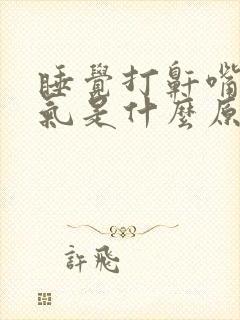 睡覺打鼾嘴
氣是什麼原
許飛